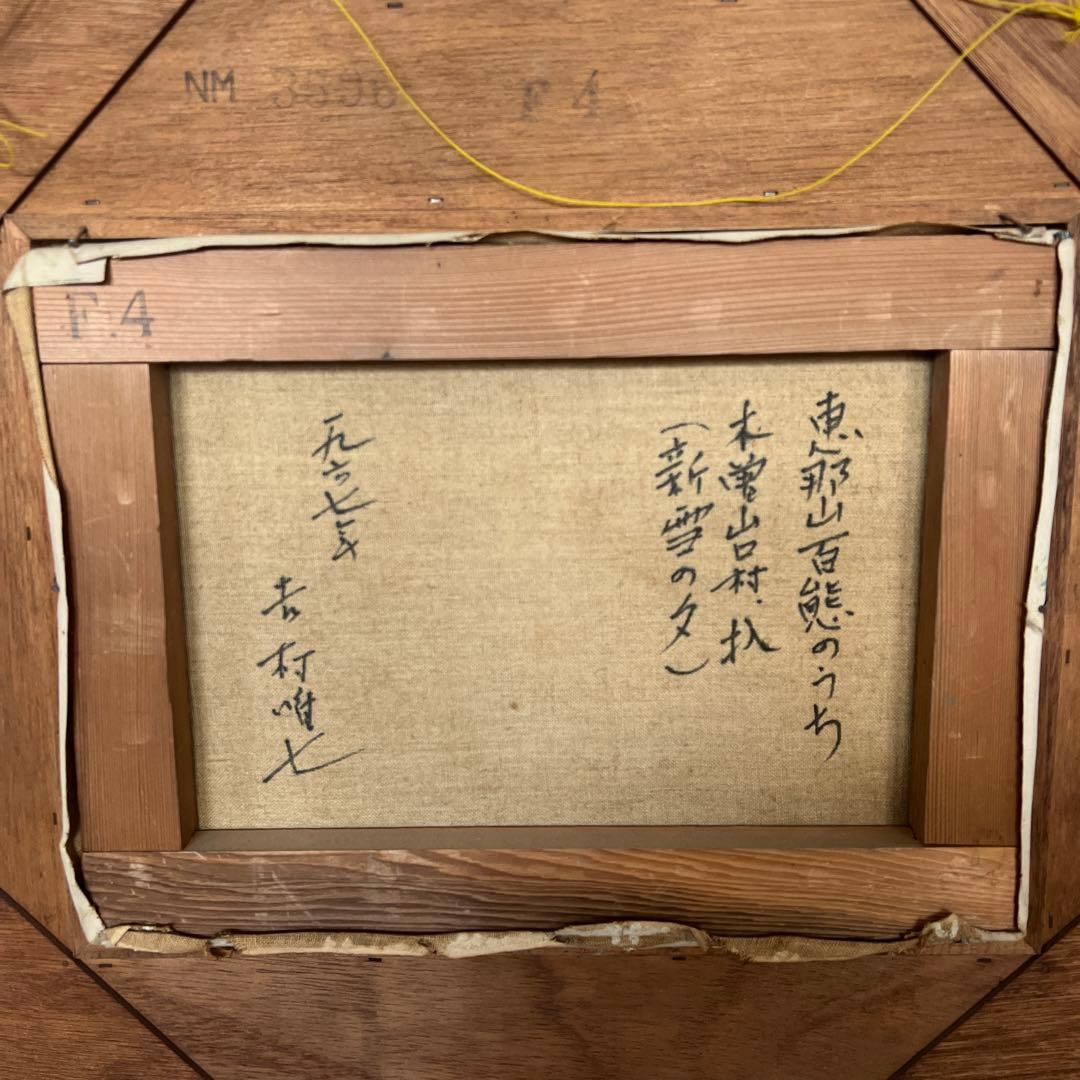 NM
F 4
F.4
恵那山百態のうち
木曽山口村
(新雪の夕)
一九六七年
吉村唯七